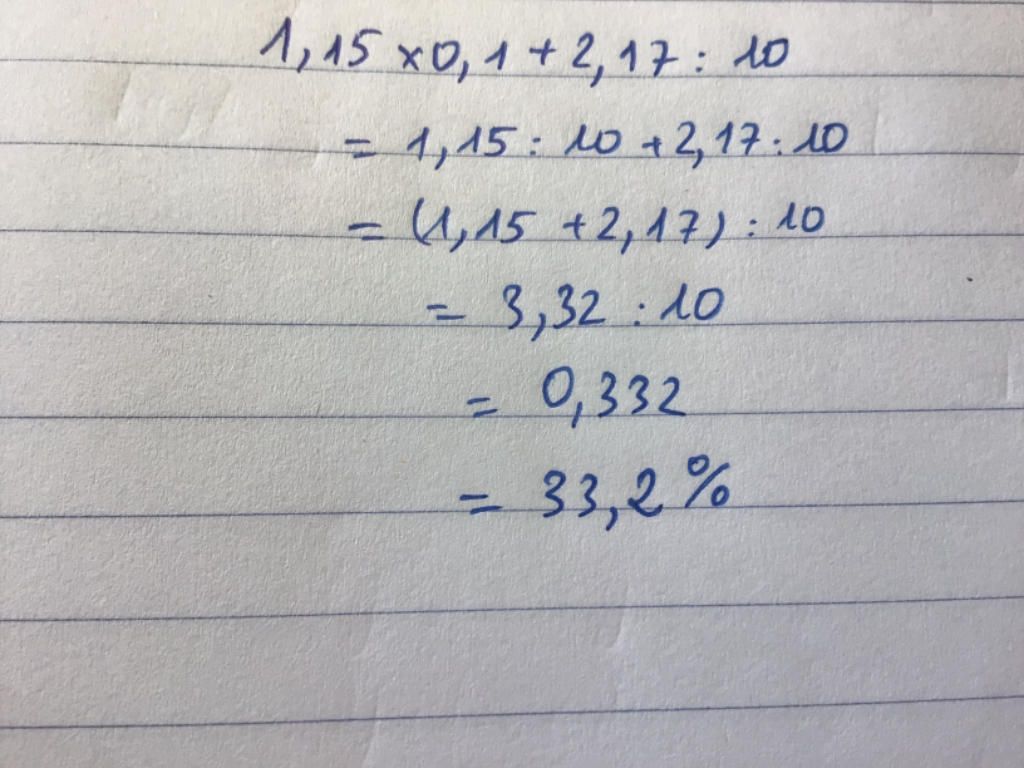 1,15 × 0,1 + 2,17 : 10
= 1,15 : 10 + 2,17 : 10
= (1,15 + 2,17) : 10
= 3,32 : 10
= 0,332
= 33,2 %